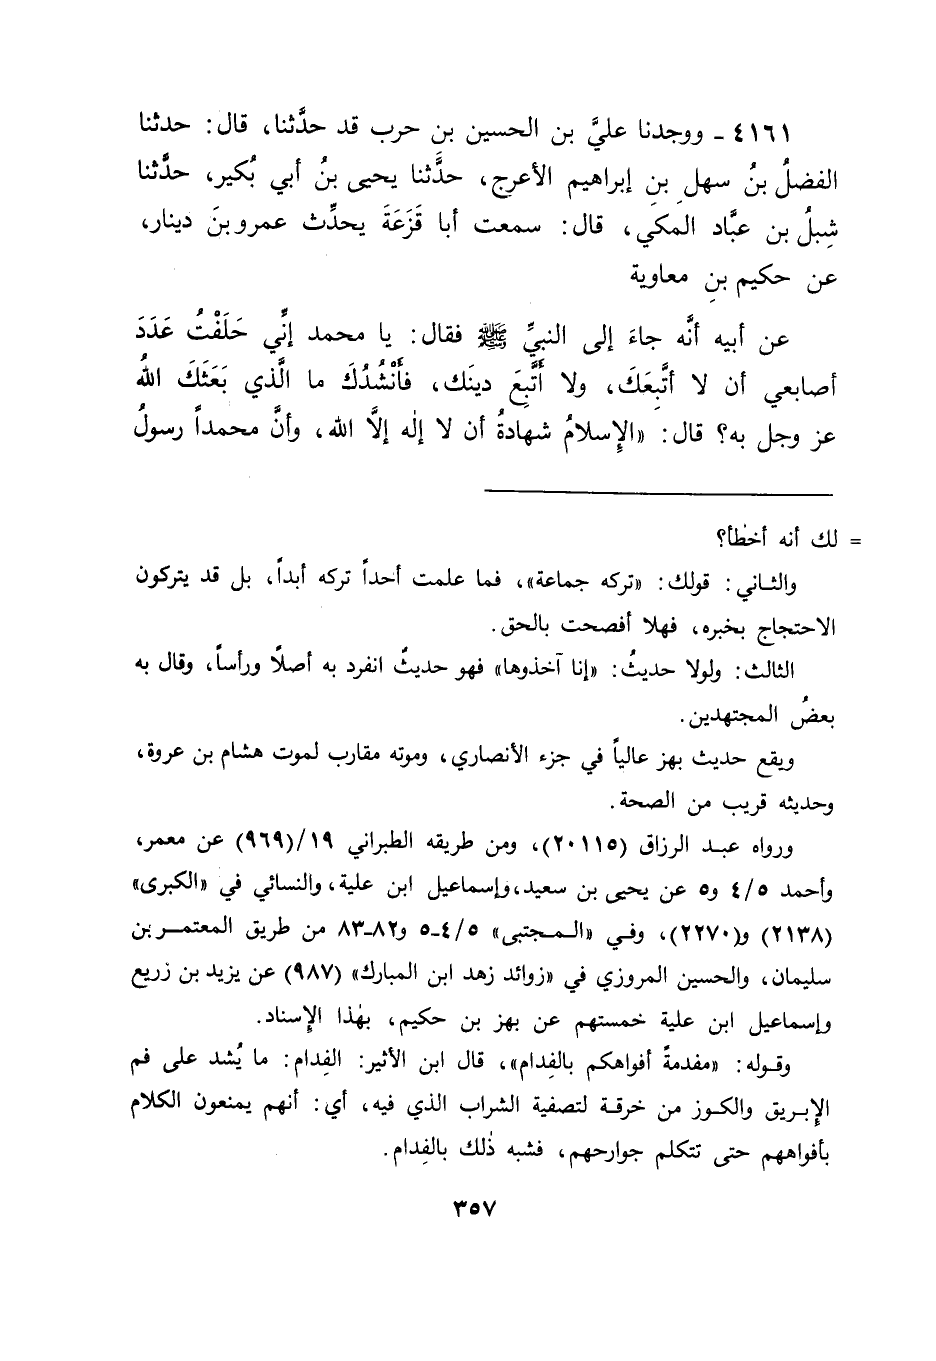 ٤١٦١ ـ ووجدنا عليَّ بن الحسين بن حرب قد حدَّثنا، قال: حدثنا
الفضلُ بنُ سهلِ بنِ إبراهيم الأعرج، حدَّثنا يحيى بنُ أبي بُكير، حدَّثنا
شِبلُ بن عبَّاد المكي، قال: سمعت أبا قَزَعَةَ يحدِّث عمرو بنَ دينار،
عن حكيم بنِ معاوية
عن أبيه أنَّه جاءَ إلى النبيِّ ﷺ فقال: يا محمد إنِّي حَلَفْتُ عَدَدَ
أصابعي أن لا أتَّبِعَكَ، ولا أتَّبِعَ دينَك، فأَنْشُدُكَ ما الَّذي بَعَثَكَ اللهُ
عز وجل به؟ قال: «الإِسلامُ شهادةُ أن لا إلٰه إلَّا الله، وأنَّ محمداً رسولُ
= لك أنه أخطأ؟
والثاني: قولك: «تركه جماعة»، فما علمت أحداً تركه أبداً، بل قد يتركون
الاحتجاج بخبره، فهلا أفصحت بالحق.
الثالث: ولولا حديثُ: «إنا آخذوها» فهو حديثٌ انفرد به أصلًا ورأساً، وقال به
بعضُ المجتهدين.
ويقع حديث بهز عالياً في جزء الأنصاري، وموته مقارب لموت هشام بن عروة،
وحديثه قريب من الصحة.
ورواه عبد الرزاق (٢٠١١٥)، ومن طريقه الطبراني ١٩/(٩٦٩) عن معمر،
وأحمد ٤/٥ و٥ عن يحيى بن سعيد، وإسماعيل ابن علية، والنسائي في «الكبرى»
(٢١٣٨) و(٢٢٧٠)، وفي «المجتبى» ٤/٥ـ٥ و٨٢ـ٨٣ من طريق المعتمر بن
سليمان، والحسين المروزي في «زوائد زهد ابن المبارك» (٩٨٧) عن يزيد بن زريع
وإسماعيل ابن علية خمستهم عن بهز بن حكيم، بهٰذا الإِسناد.
وقوله: «مفدمةً أفواهكم بالفِدام»، قال ابن الأثير: الفِدام: ما يُشد على فم
الإِبريق والكوز من خرقة لتصفية الشراب الذي فيه، أي: أنهم يمنعون الكلام
بأفواههم حتى تتكلم جوارحهم، فشبه ذٰلك بالفِدام.
٣٥٧